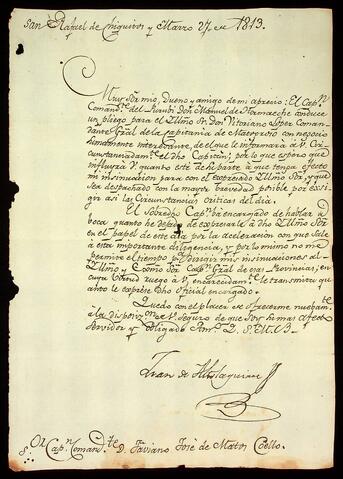 San Rafael de Chiquitos y Marzo 27 de 1813.
Muy Sor mio, Dueño y amigo de mi aprecio: El Capn
Comandte del Don Manuel de conduce
un pliego para el Illmo Sr. Don Vitoriano Lopez Coman-
dante Gral de la Capitania de Matogroso con negocio
sumamente interesante, de el que le informará a V. Cir-
cunstanciadamte el dho Capitan, por lo que espero que
influirá V. quanto este de su parte a que tenga efecto
mi insinuacion para con el expresado Illmo Sor, y que
sea despachado con la mayor brevedad posible por exi-
girlo asi las Circunstancias criticas del dia.
El sobredho Capn vá encargado de hablar à
boca quanto he dejado de expresarle à dho Illmo Sor
en el papel de este dia por la aceleracion con que sale
à esta importante diligencia, y por lo mismo no me
permite el tiempo pa dirigir mis insinuaciones al
Illmo y Exmo Sor Capn Gral de esas Provincias, en
cuya virtud ruego à V. encarecidamte le transmita qu-
anto le exprese dho oficial encargado.
Quedo con el placer de ofrecerme nuebamte
á la disposon de V. seguro de que soy su mas afecto
Servidor y obligado Amo Q. S. M. B.
Juan de Altolaguirre
B
Sor Capn Comandte D. José de Matos Coello.